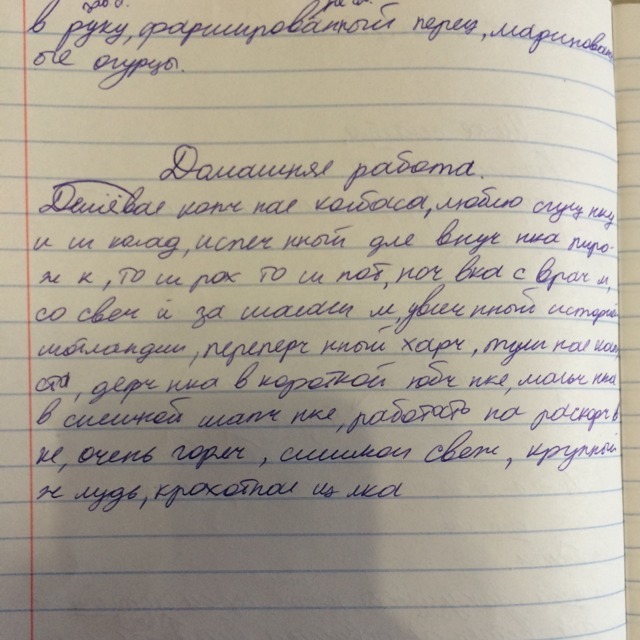 в руку, фаршированный перец, маринован
ые огурцы.
Домашняя работа.
Дешёвая копч ная колбаса, люблю сгущ нку
и ш колад, испеч нный для внуч нка пиро-
ж к, то ш рох то ш пот, ноч вка с врач м,
со свеч й за шалаш м, увлеч нный историей
шотландии, переперч нный харч, туш ная кап
ста, девч нка в короткой юбч нке, мальч нка
в смешной шапч нке, работать на раскорч в
ке, очень горяч , слишком свеж , крупный
ж лудь, крохотная щ лка